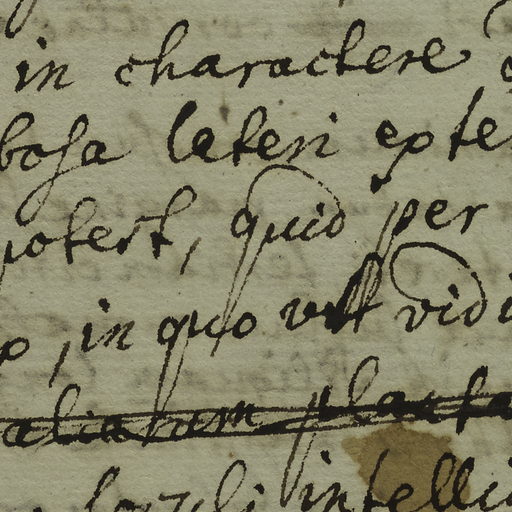 in charactere
bosa lateri exte
potest, quid per
o, in quo vidi
aliarum planta
intelli